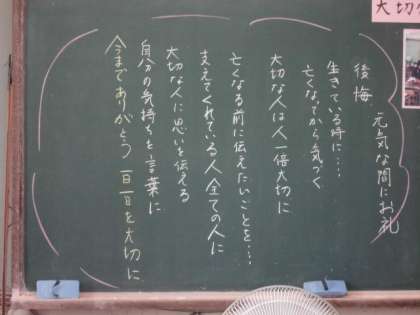 大切
元気な間にお礼
後悔
生きている時に……
亡くなってから気づく
大切な人は人一倍大切に
亡くなる前に伝えたいことを…
支えてくれている人全ての人に
大切な人に思いを伝える
自分の気持ちを言葉に
今までありがとう 一日一日を大切に